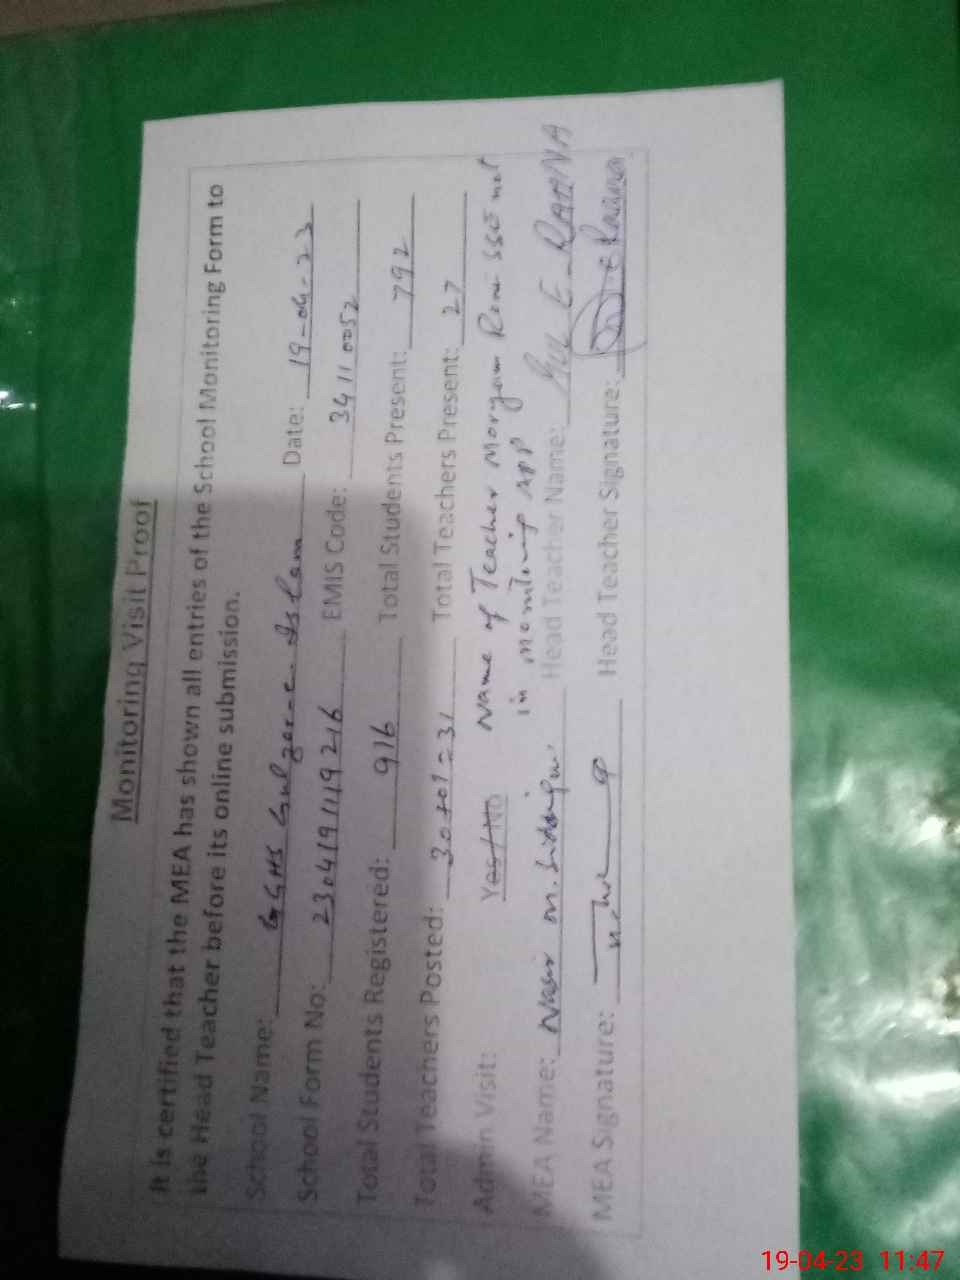 Monitoring Visit Proof
It is certified that the MEA has shown all entries of the School Monitoring Form to
the Head Teacher before its online submission.
School Name: GGHS Gulzar-e-Islam Date: 19-04-23
School Form No: 2304191119216 EMIS Code: 34110052
Total Students Registered: 916 Total Students Present: 792
Total Teachers Posted: 30+01=31 Total Teachers Present: 27
Admin Visit: Yes/No Name of Teacher Moryam Rani SSE not
in monitoring APP
MEA Name: Nasir M. Head Teacher Name: Gul E-RAHNA
MEA Signature: Head Teacher Signature:
19-04-23 11:47